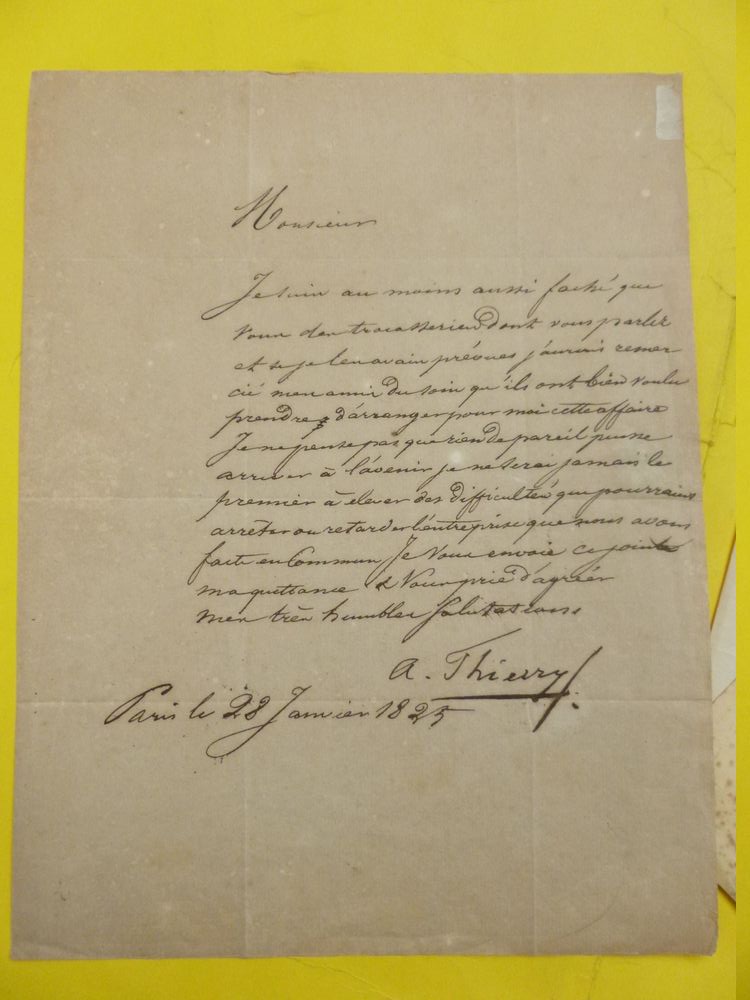 Monsieur
Je suis au moins aussi faché que
vous des tracasseries dont vous parler
et si je les avais prévues j'aurais remer
cié mes amis du soin qu'ils ont bien voulu
prendre d'arranger pour moi cette affaire
Je ne pense pas que rien de pareil puisse
arriver à l'avenir je ne serai jamais le
premier à élever des difficultés qui pourraient
arrêter ou retarder l'entreprise que nous avons
faite en Commun Je Vous envoie ci jointe
ma quittance & Vous prie d'agréer
mes très humbles Salutations
A. Thierry
Paris le 28 Janvier 1825